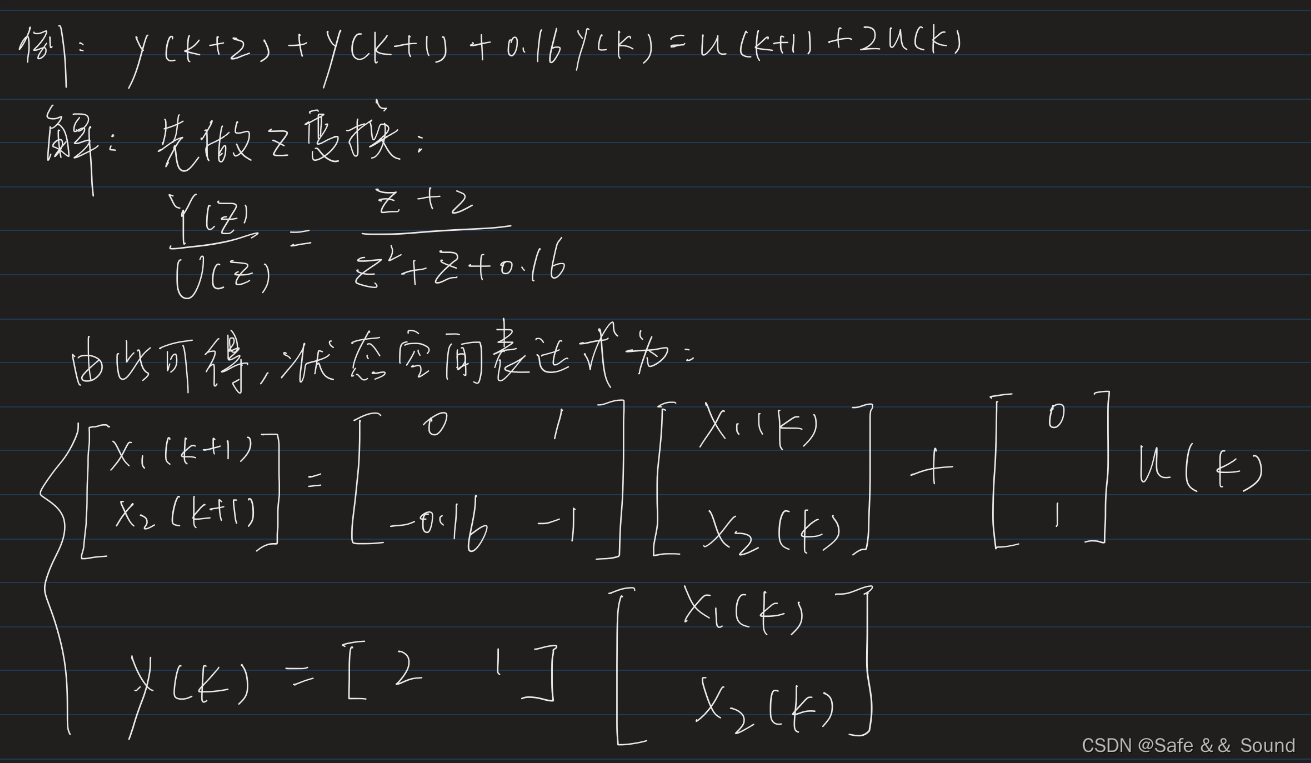 例: y(k+2) + y(k+1) + 0.16y(k) = u(k+1) + 2u(k)
解: 先做z变换:
Y(z)/U(z) = (z+2)/(z²+z+0.16)
由此可得,状态空间表达式为:
{ [x₁(k+1); x₂(k+1)] = [0 1; -0.16 -1] [x₁(k); x₂(k)] + [0; 1] u(k)
y(k) = [2 1] [x₁(k); x₂(k)]
CSDN @Safe && Sound